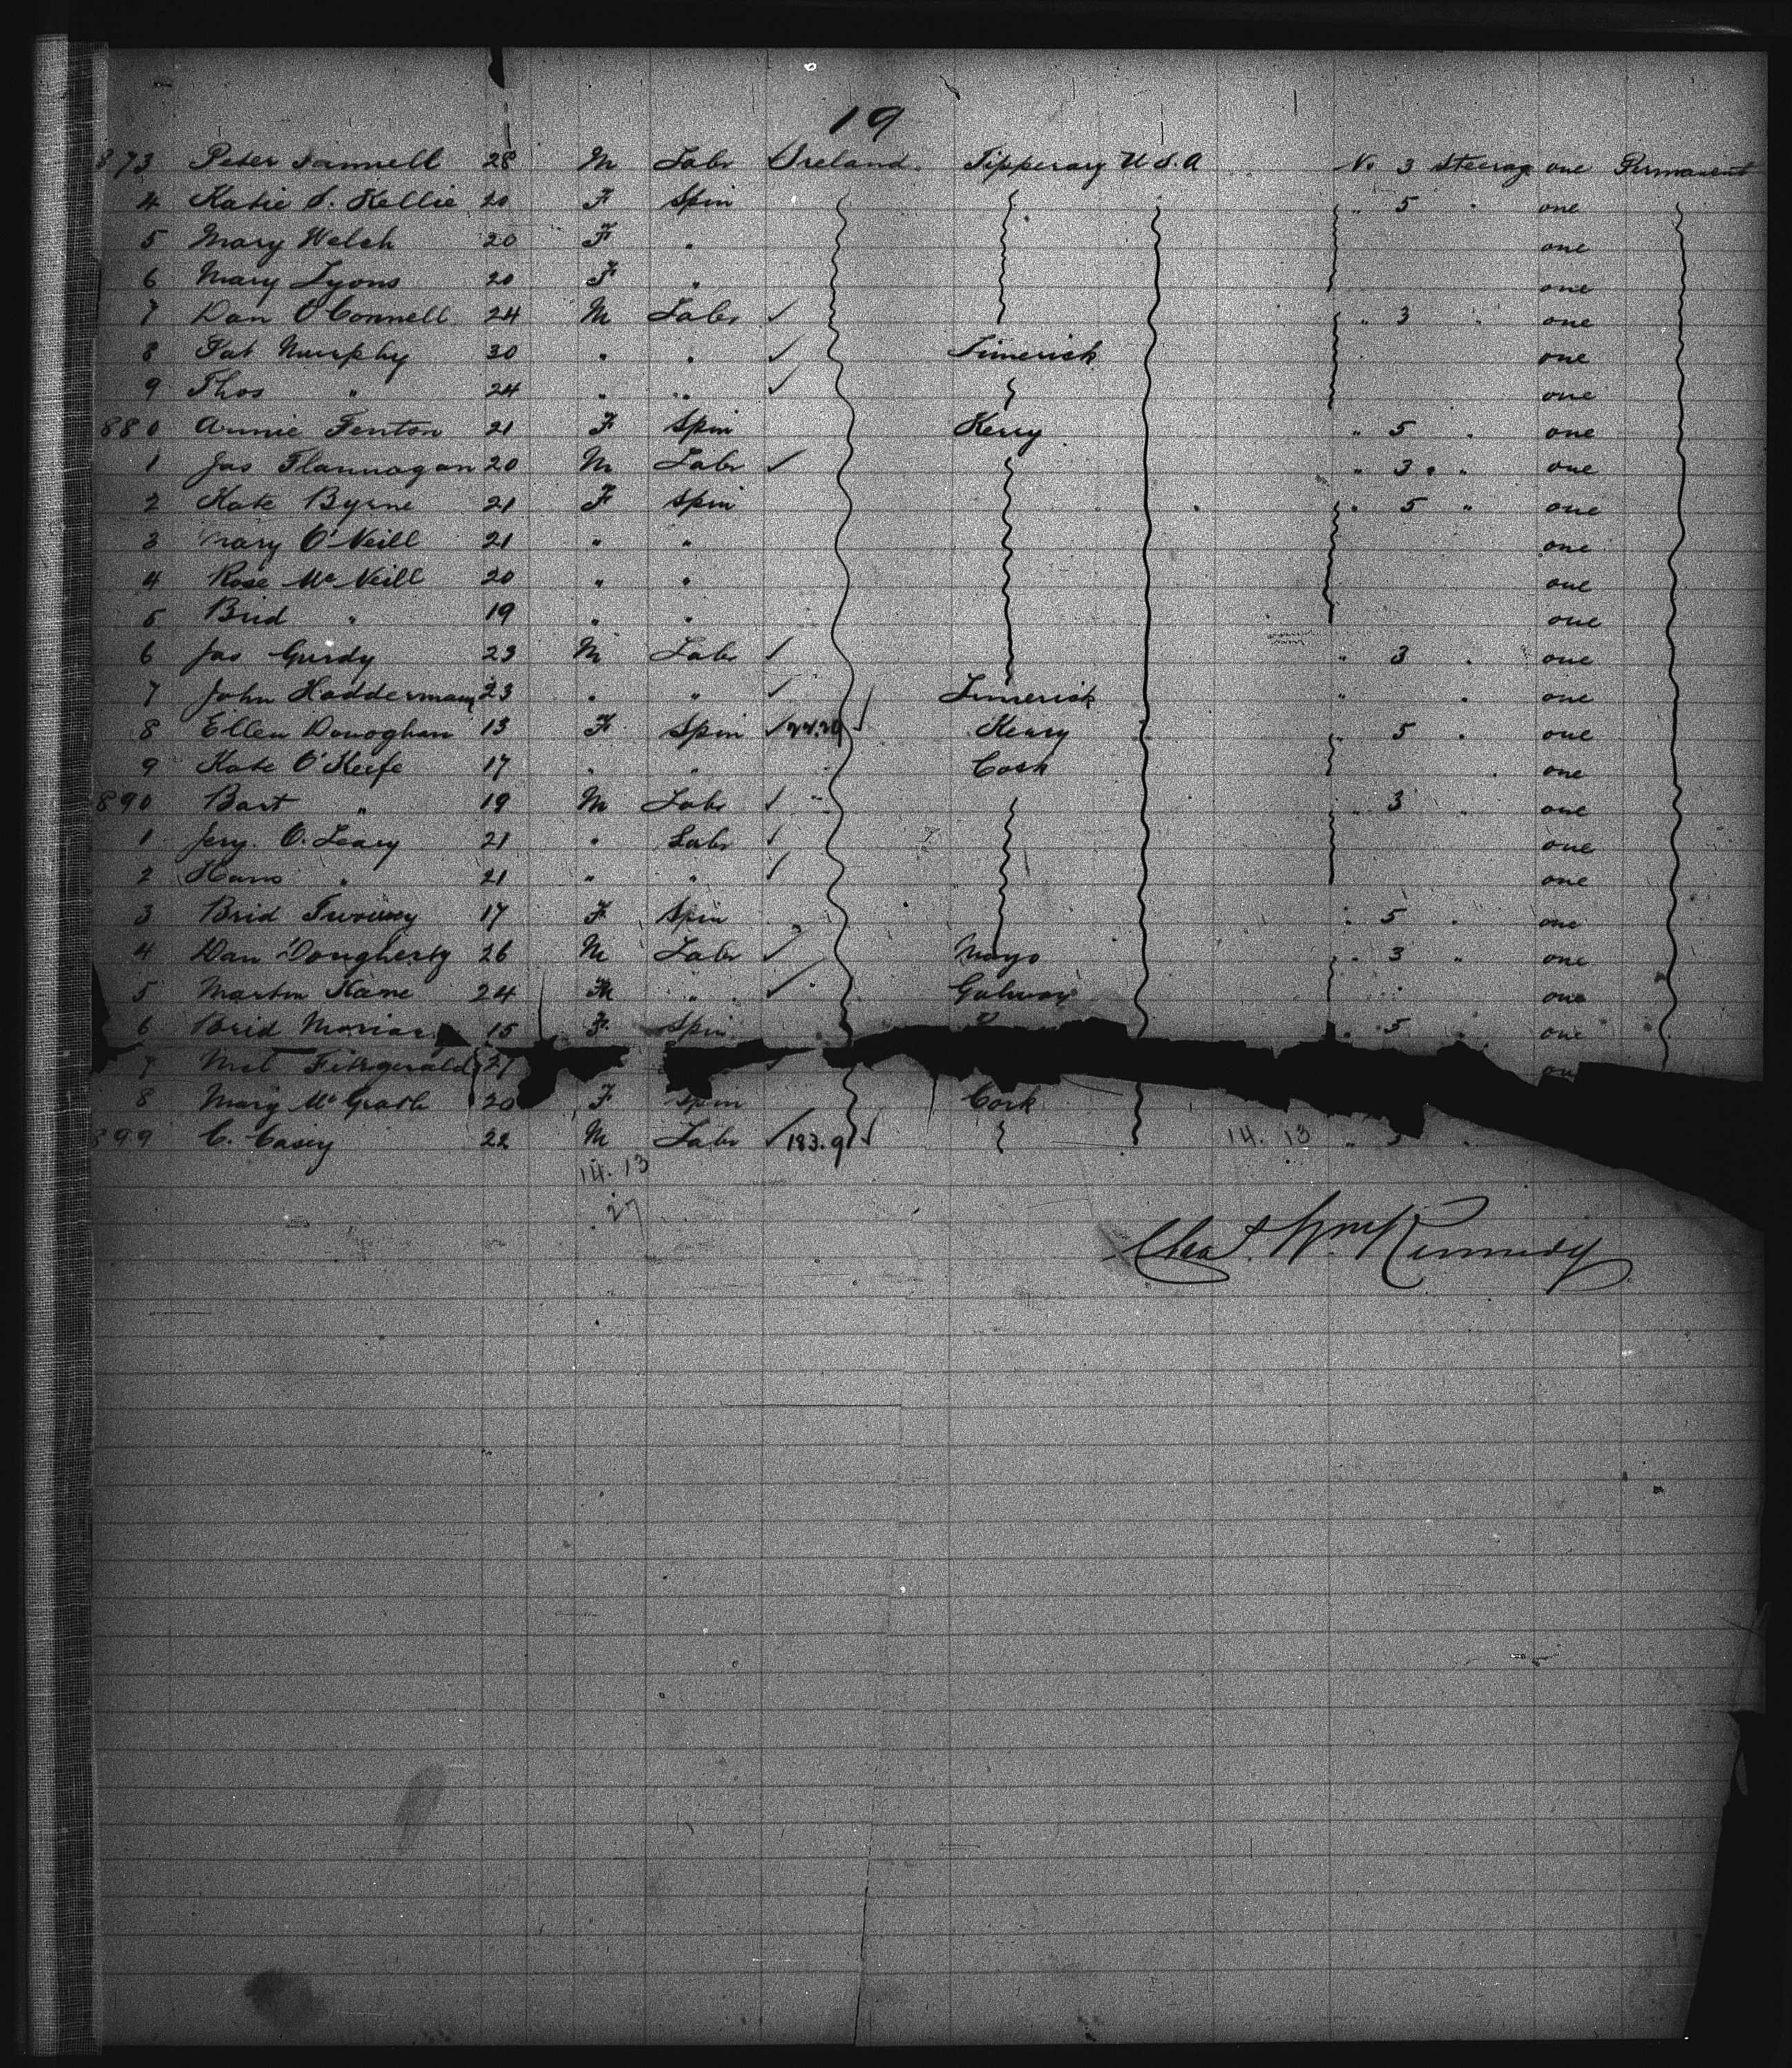 19
873 Peter Fannell 28 M Labr Ireland Tipperary U.S.A No 3 Steerag one Permanent
4 Katie S. Kellie 20 F Spin " 5 " one
5 Mary Welch 20 F " one
6 Mary Lyons 20 F " one
7 Dan O'Connell 24 M Labr ✓ " 3 " one
8 Pat Murphy 30 " " ✓ Limerick one
9 Thos " 24 " " ✓ one
880 Annie Fenton 21 F Spin Kerry " 5 " one
1 Jas Flannagan 20 M Labr ✓ " 3 " one
2 Kate Byrne 21 F Spin " 5 " one
3 Mary O'Neill 21 " " one
4 Rose McNeill 20 " " one
5 Brid " 19 " " one
6 Jas Gurdy 23 M Labr ✓ " 3 " one
7 John Haddermann 23 " " ✓ Limerick " " one
8 Ellen Donoghan 13 F Spin ✓ Kerry " 5 " one
9 Kate O'Keefe 17 " " Cork " one
890 Bart " 19 M Labr ✓ " 3 " one
1 Jery. O. Leary 21 " Labr ✓ one
2 " 21 " " ✓ one
3 Brid Twomey 17 F Spin " 5 " one
4 Dan Dougherty 26 M Labr ✓ Mayo " 3 " one
5 Martin Kane 24 M " ✓ Galway " one
6 Brid 15 F Spin " 5 " one
7 Fitzgerald 27 ✓
8 Mary McGrath 20 F Spin Cork
899 C. Casey 22 M Labr ✓ 183.9 ✓ 14. 13 " 3 "
14. 13
27
Chas. Wm Kennedy